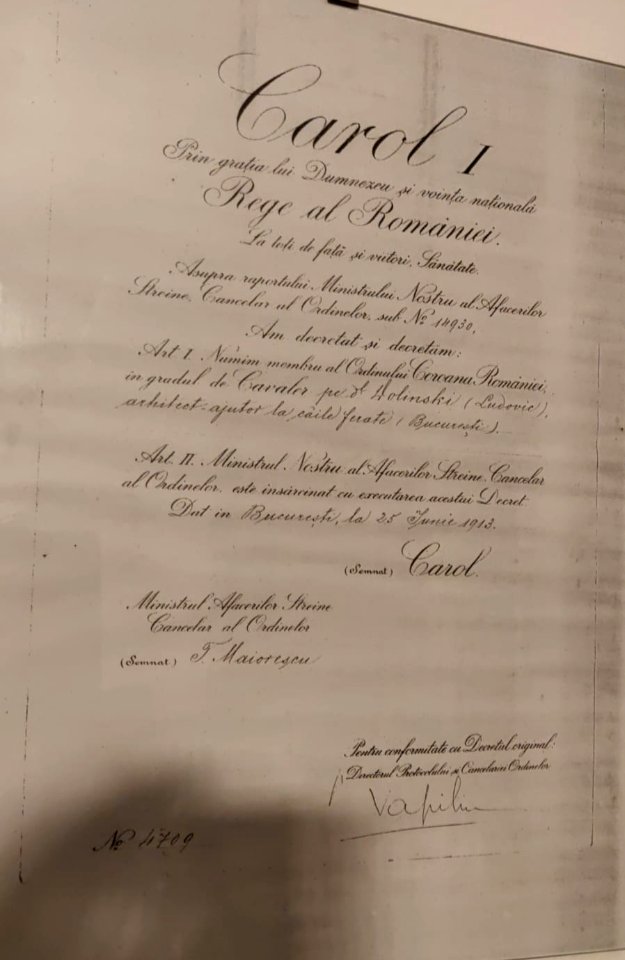 Carol I
Prin grația lui Dumnezeu și voința națională
Rege al României.
La toți de față și viitori, Sănătate.
Asupra raportului Ministrului Nostru al Afacerilor
Streine, Cancelar al Ordinelor, sub No 14930,
Am decretat și decretăm:
Art I. Numim membru al Ordinului Coroana României,
in gradul de Cavaler pe dl Dolinski (Ludovic),
arhitect-ajutor la căile ferate (București).
Art. II. Ministrul Nostru al Afacerilor Streine, Cancelar
al Ordinelor, este insărcinat cu executarea acestui Decret.
Dat in București, la 25 Iunie 1913.
(Semnat) Carol.
Ministrul Afacerilor Streine
Cancelar al Ordinelor
(Semnat) T. Maiorescu
Pentru conformitate cu Decretul original:
Directorul Protocolului și Cancelariei Ordinelor
No 4709